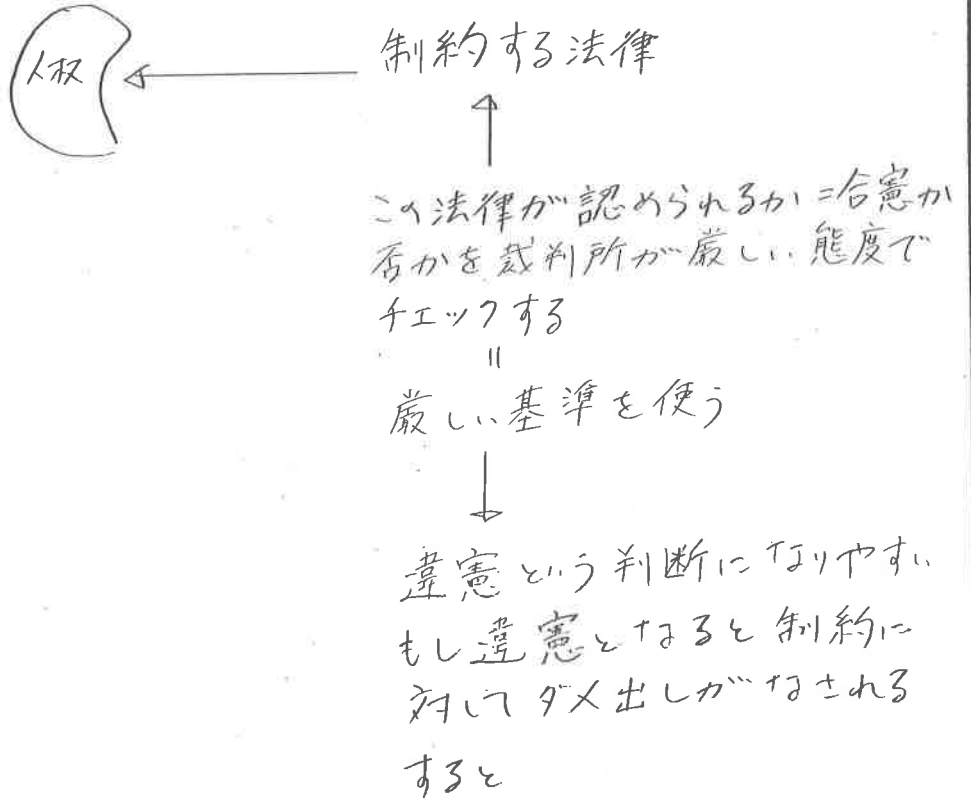 人权
制約する法律
この法律が認められるか=合憲か
否かを裁判所が厳しい態度で
チェックする
=
厳しい基準を使う
違憲という判断になりやすい
もし違憲となると制約に
対してダメ出しがなされる
すると